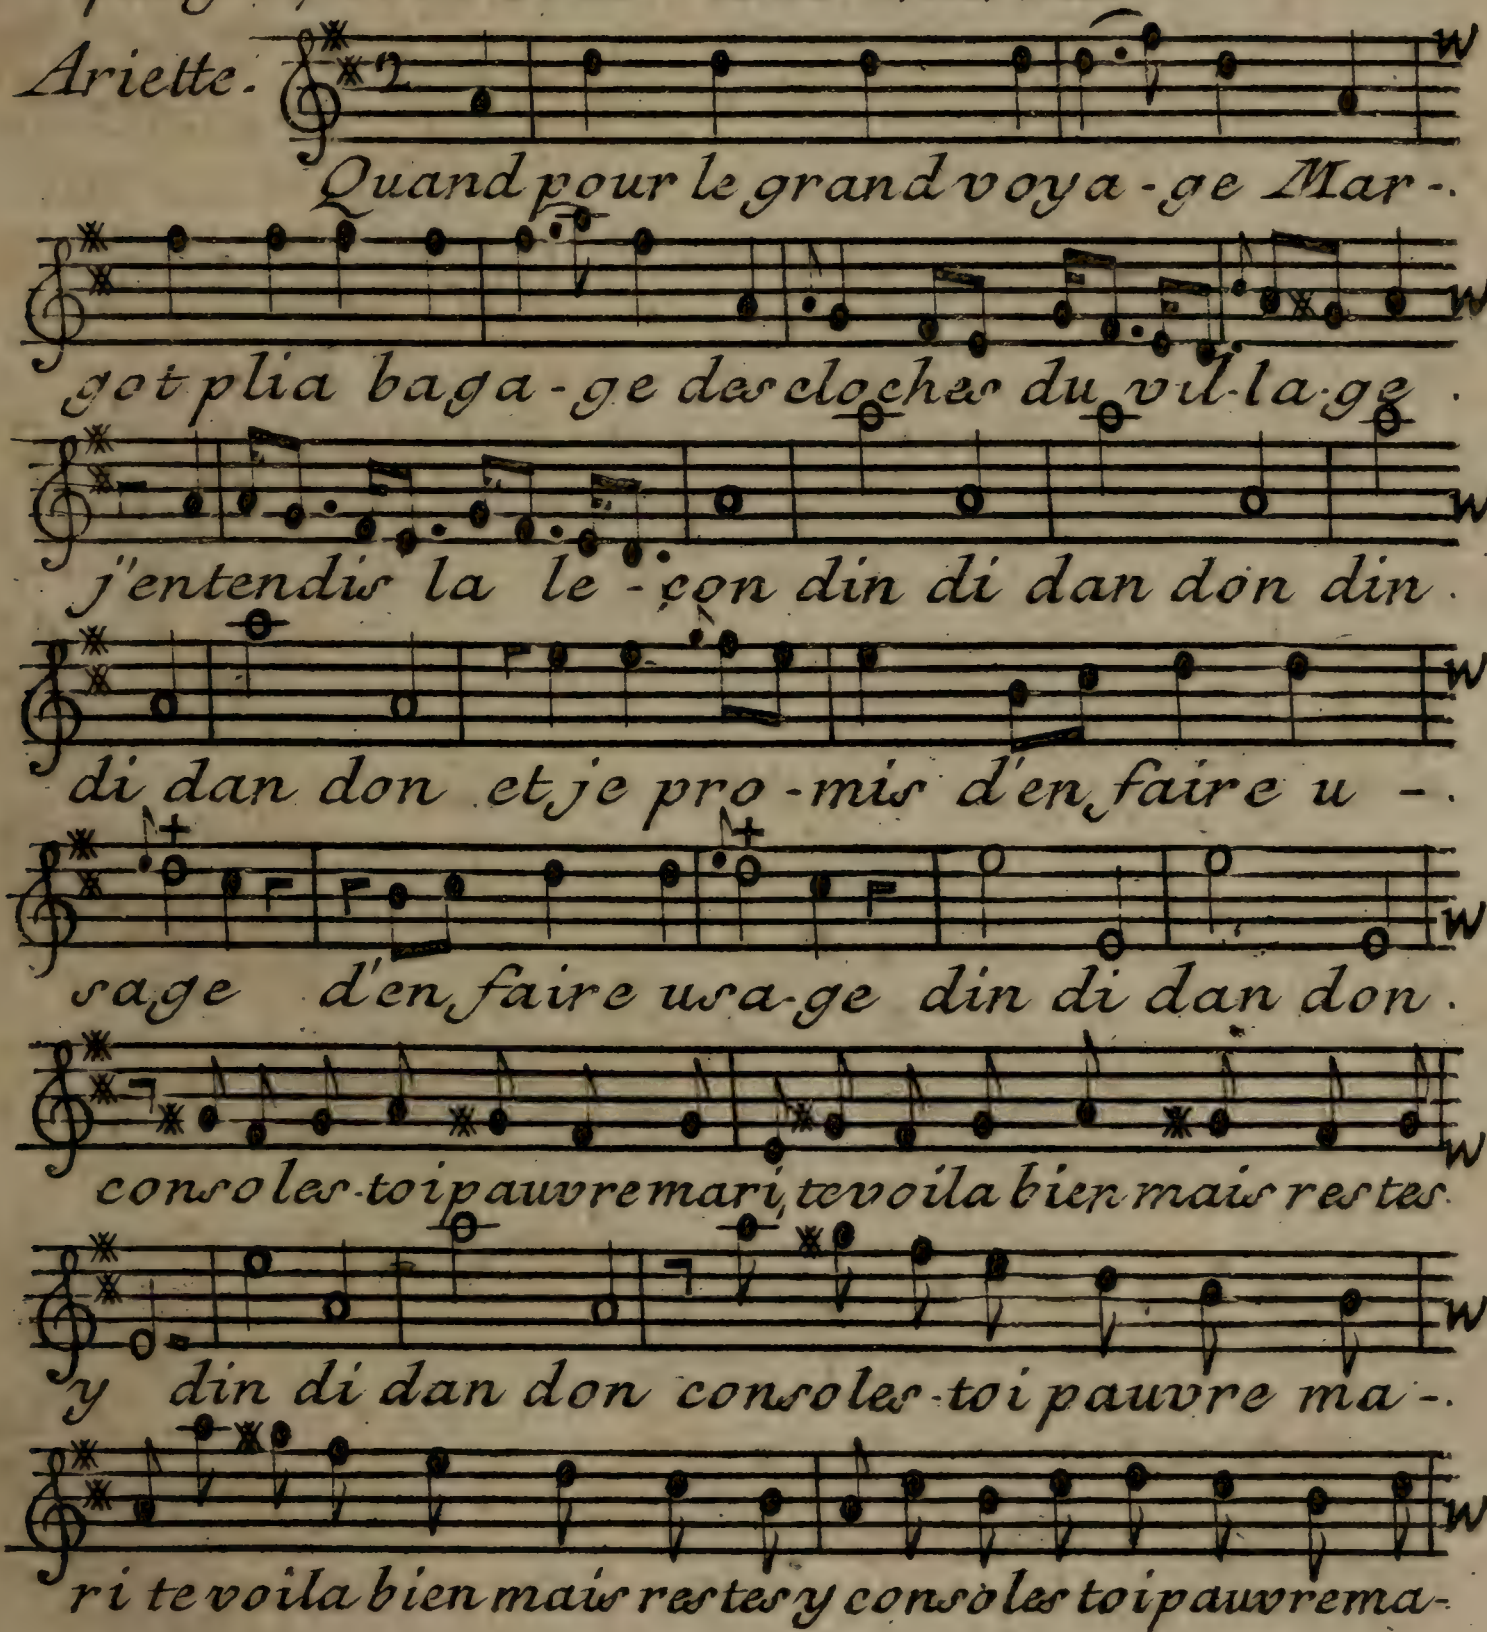 Ariette. 2
Quand pour le grand voya-ge Mar-.
got plia baga-ge des cloches du vil-la-ge.
j'entendis la le-çon din di dan don din.
di dan don et je pro-mis d'en faire u-.
sage d'en faire usa-ge din di dan don.
consoles-toi pauvre mari, te voila bien mais restes.
y din di dan don consoles-toi pauvre ma-.
ri te voila bien mais restes y consoles toi pauvre ma-